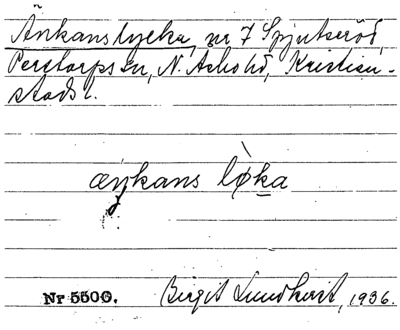 Änkanslycka, nr 7 Spjutseröd,
Perstorps sn, N. Åsbo hd, Kristian-
stads l.
æŋkans lø̀ka
Nr 5500. Birgit Lundkvist, 1936.